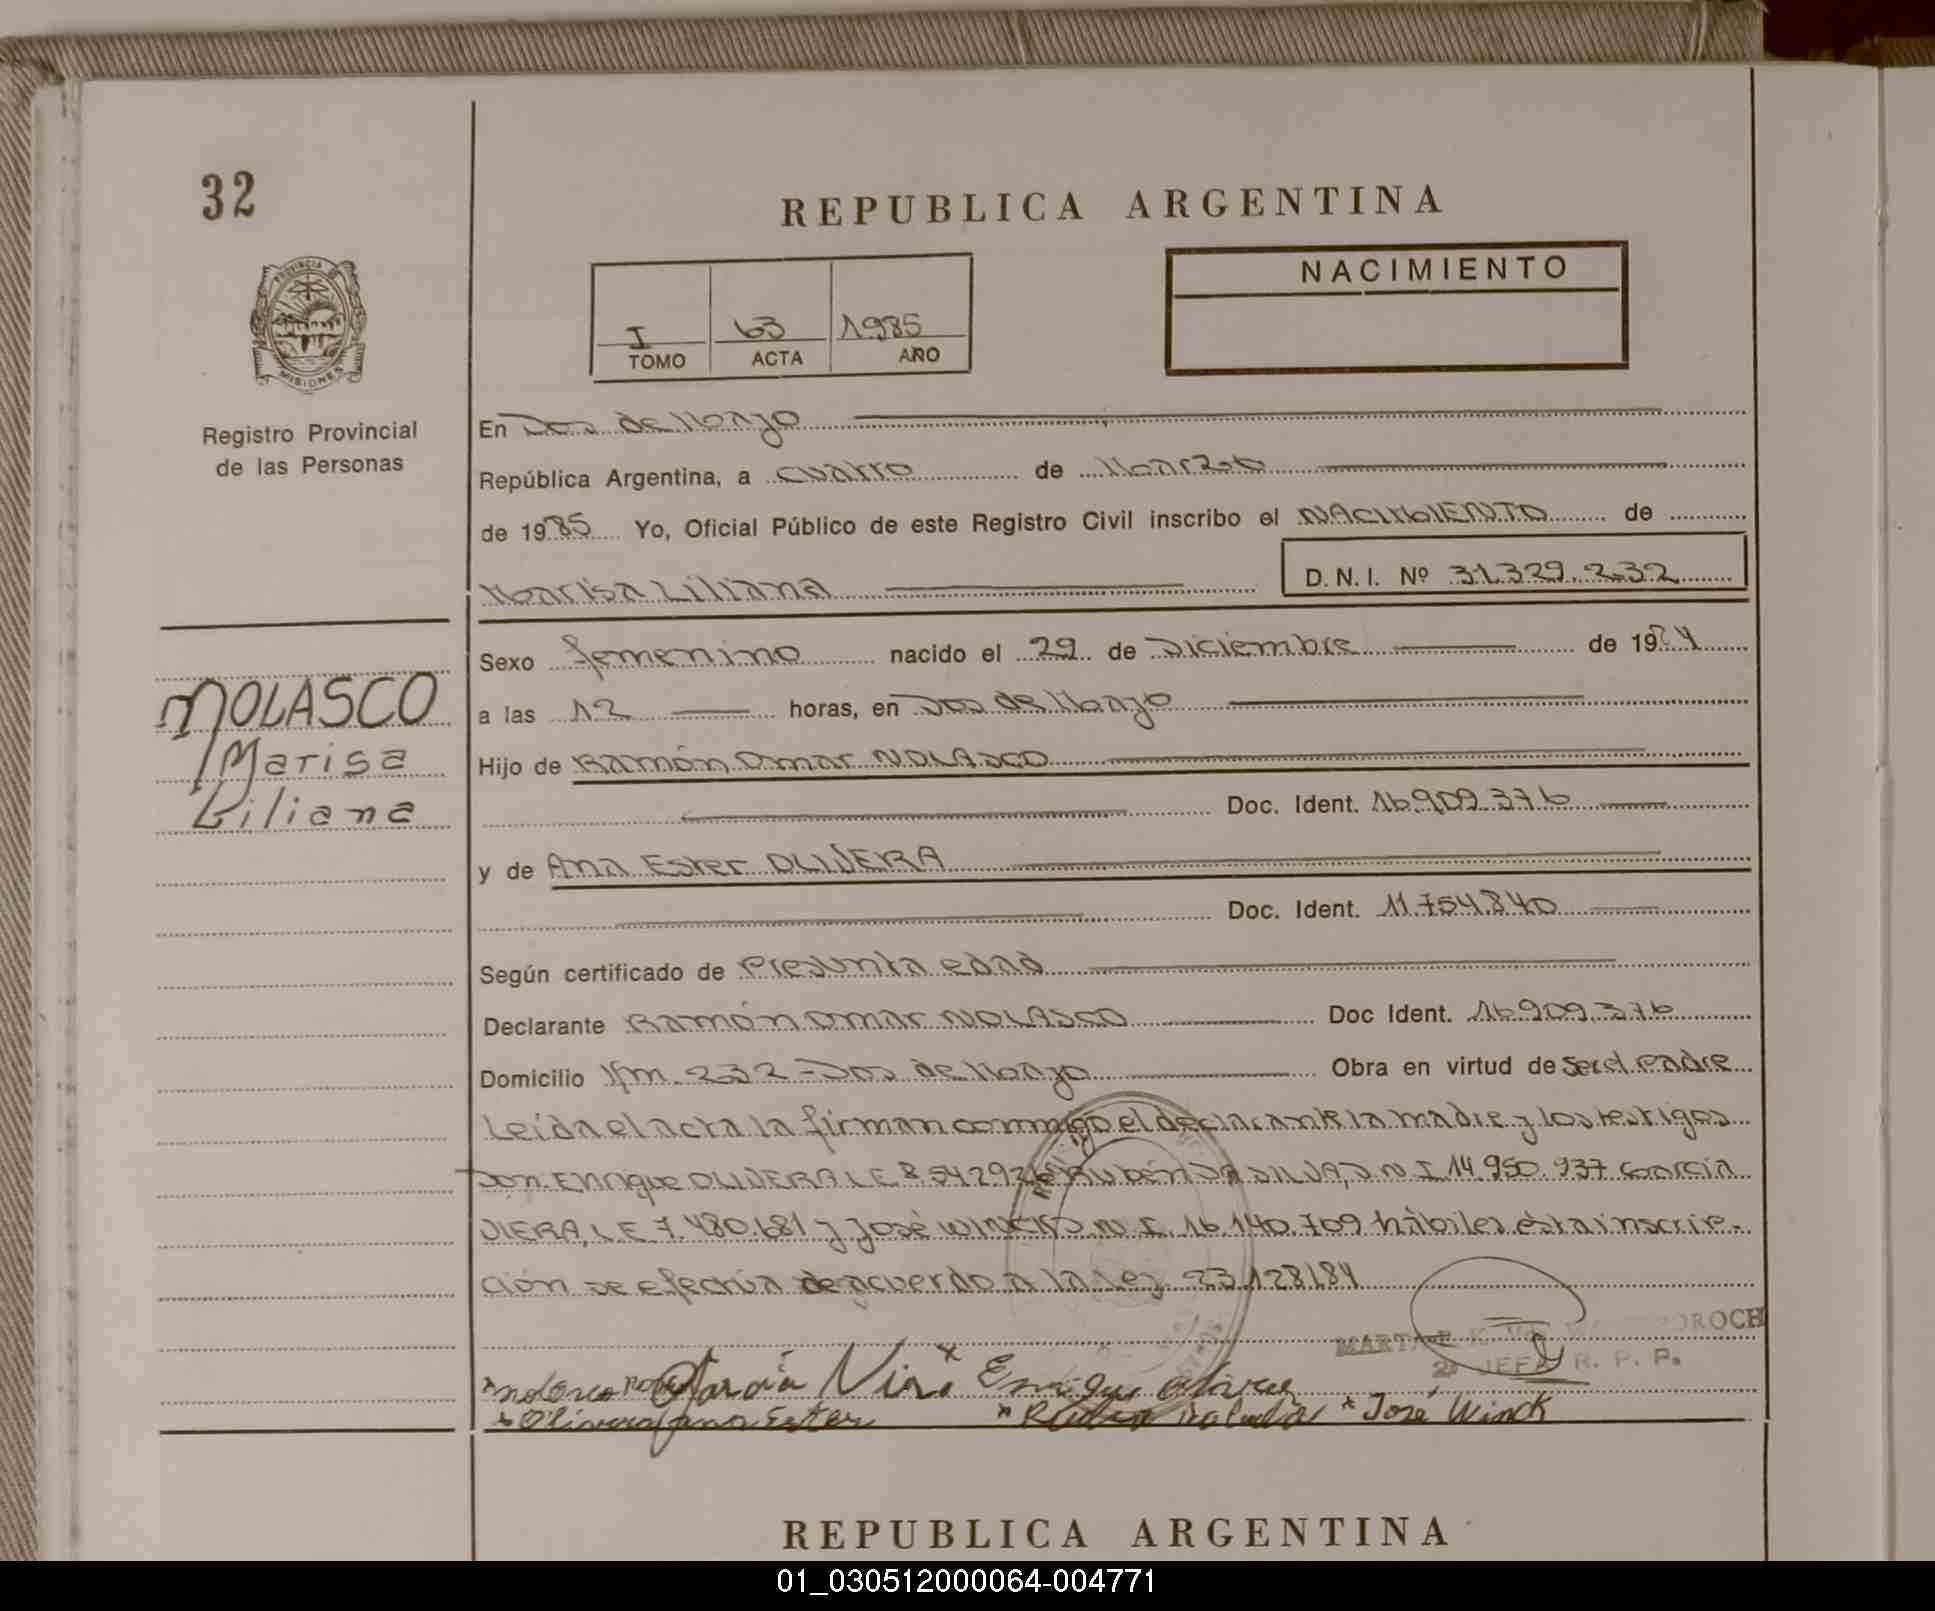 32
REPUBLICA ARGENTINA
PROVINCIA DE
MISIONES
Registro Provincial
de las Personas
NACIMIENTO
I 63 1985
TOMO ACTA AÑO
En Dos de Mayo
República Argentina, a cuatro de Marzo
de 1985 Yo, Oficial Público de este Registro Civil inscribo el NACIMIENTO de
Marisa Liliana D.N.I. Nº 31.329.232
Sexo femenino nacido el 29 de Diciembre de 19
MOLASCO
Marisa
Liliana
a las 12 horas, en Dos de Mayo
Hijo de Ramón Omar NOLASCO
Doc. Ident. 16.909.376
y de Ana Ester OLIVERA
Doc. Ident. 11.754.840
Según certificado de Presunta edad
Declarante Ramón Omar NOLASCO Doc Ident. 16.909.376
Domicilio Km. 232 - Dos de Mayo Obra en virtud de Ser el Padre
Leida el acta la firman conmigo el declarante la madre y los testigos
Don Enrique OLIVERA L E 8 542926 Rubén DA SILVA, D.N.I 14.950.937 García
VIERA, L E 7.480.681 y José WINCK D.N.I. 16.140.709 hábiles ésta inscrip-
ción se efectúa de acuerdo a la Ley 23.128/84
MARTA OROCH
JEFE R. P. P.
x Enrique Olivera
x Olivera Ana Ester x Ruben x José Winck
REPUBLICA ARGENTINA
01_030512000064-004771